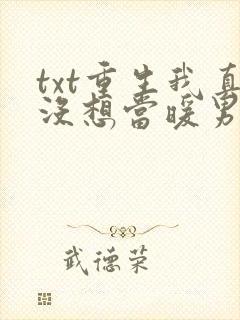 txt重生我真
没想当暖男
武德荣